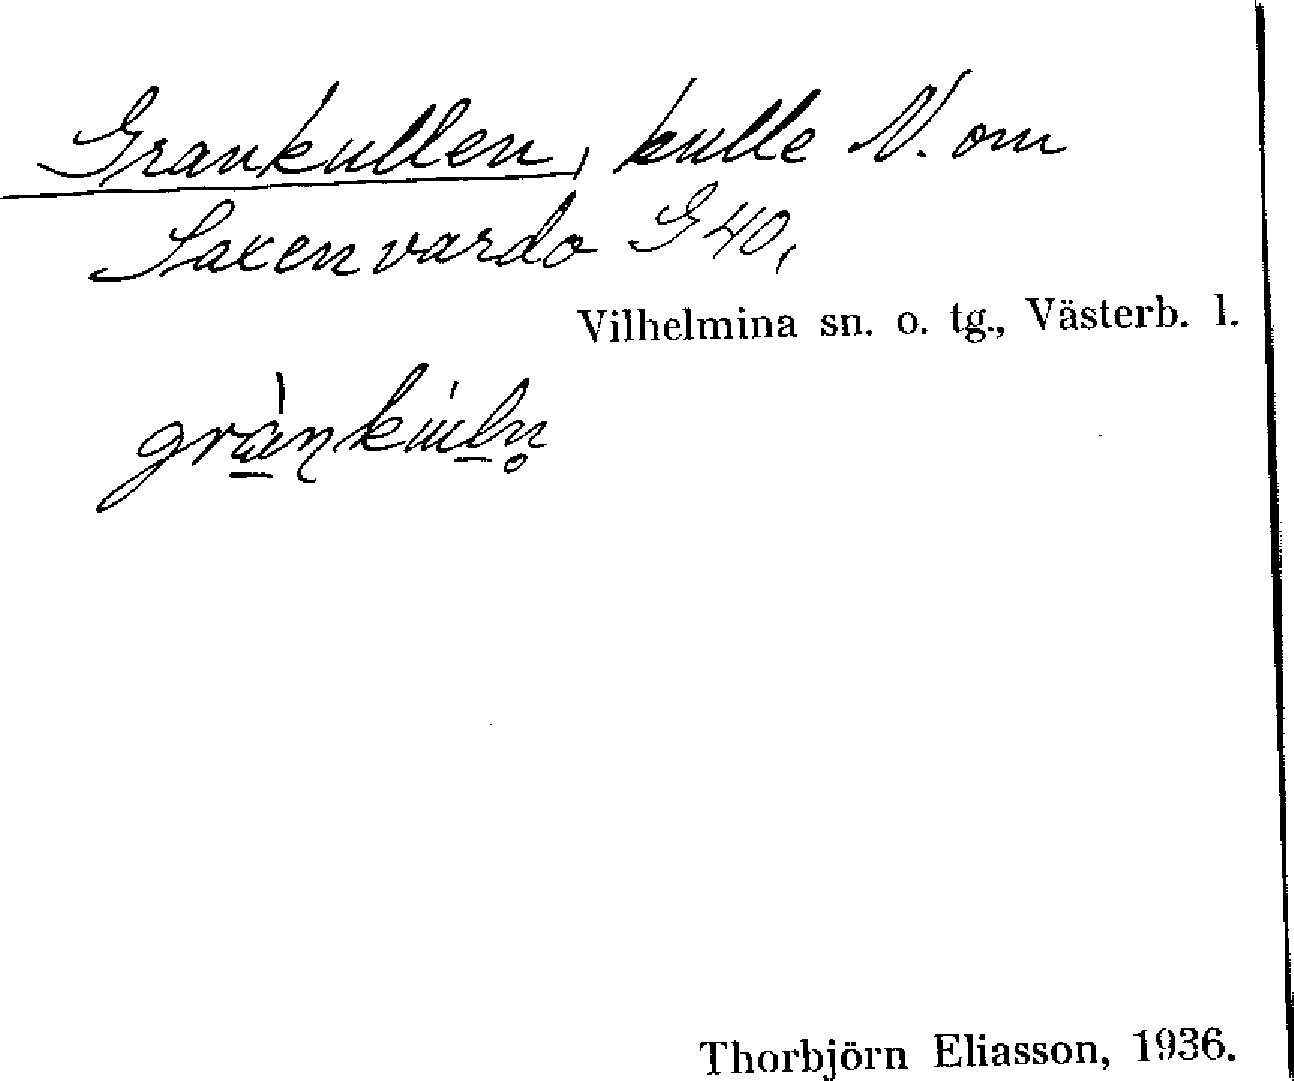 Grankullen, kulle N. om
Saxenvardo G 40,
Vilhelmina sn. o. tg., Västerb. l.
Thorbjörn Eliasson, 1936.